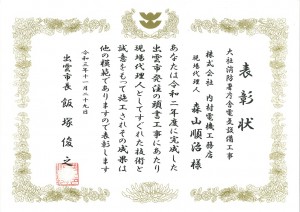 表彰状
大社消防署庁舎電気設備工事
株式会社 内村電機工務店
現場代理人 森山順治様
あなたは令和二年度に完成した
出雲市発注の頭書工事にあたり
現場代理人としてすぐれた技術と
誠意をもって施工されその成果は
他の模範でありますので表彰します
令和三年十一月二十九日
出雲市長 飯塚俊之